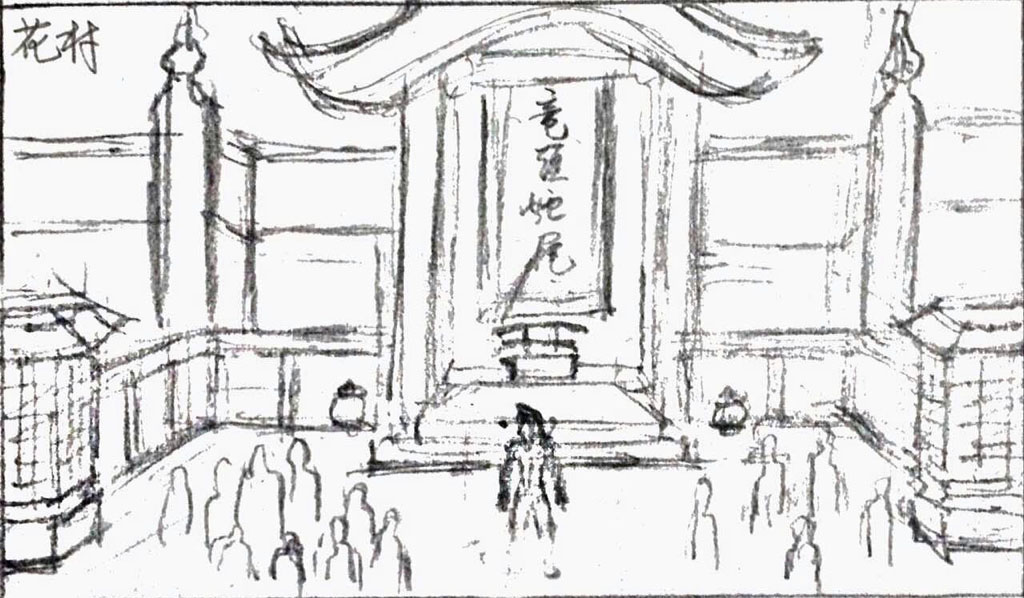 花村
竜頭蛇尾